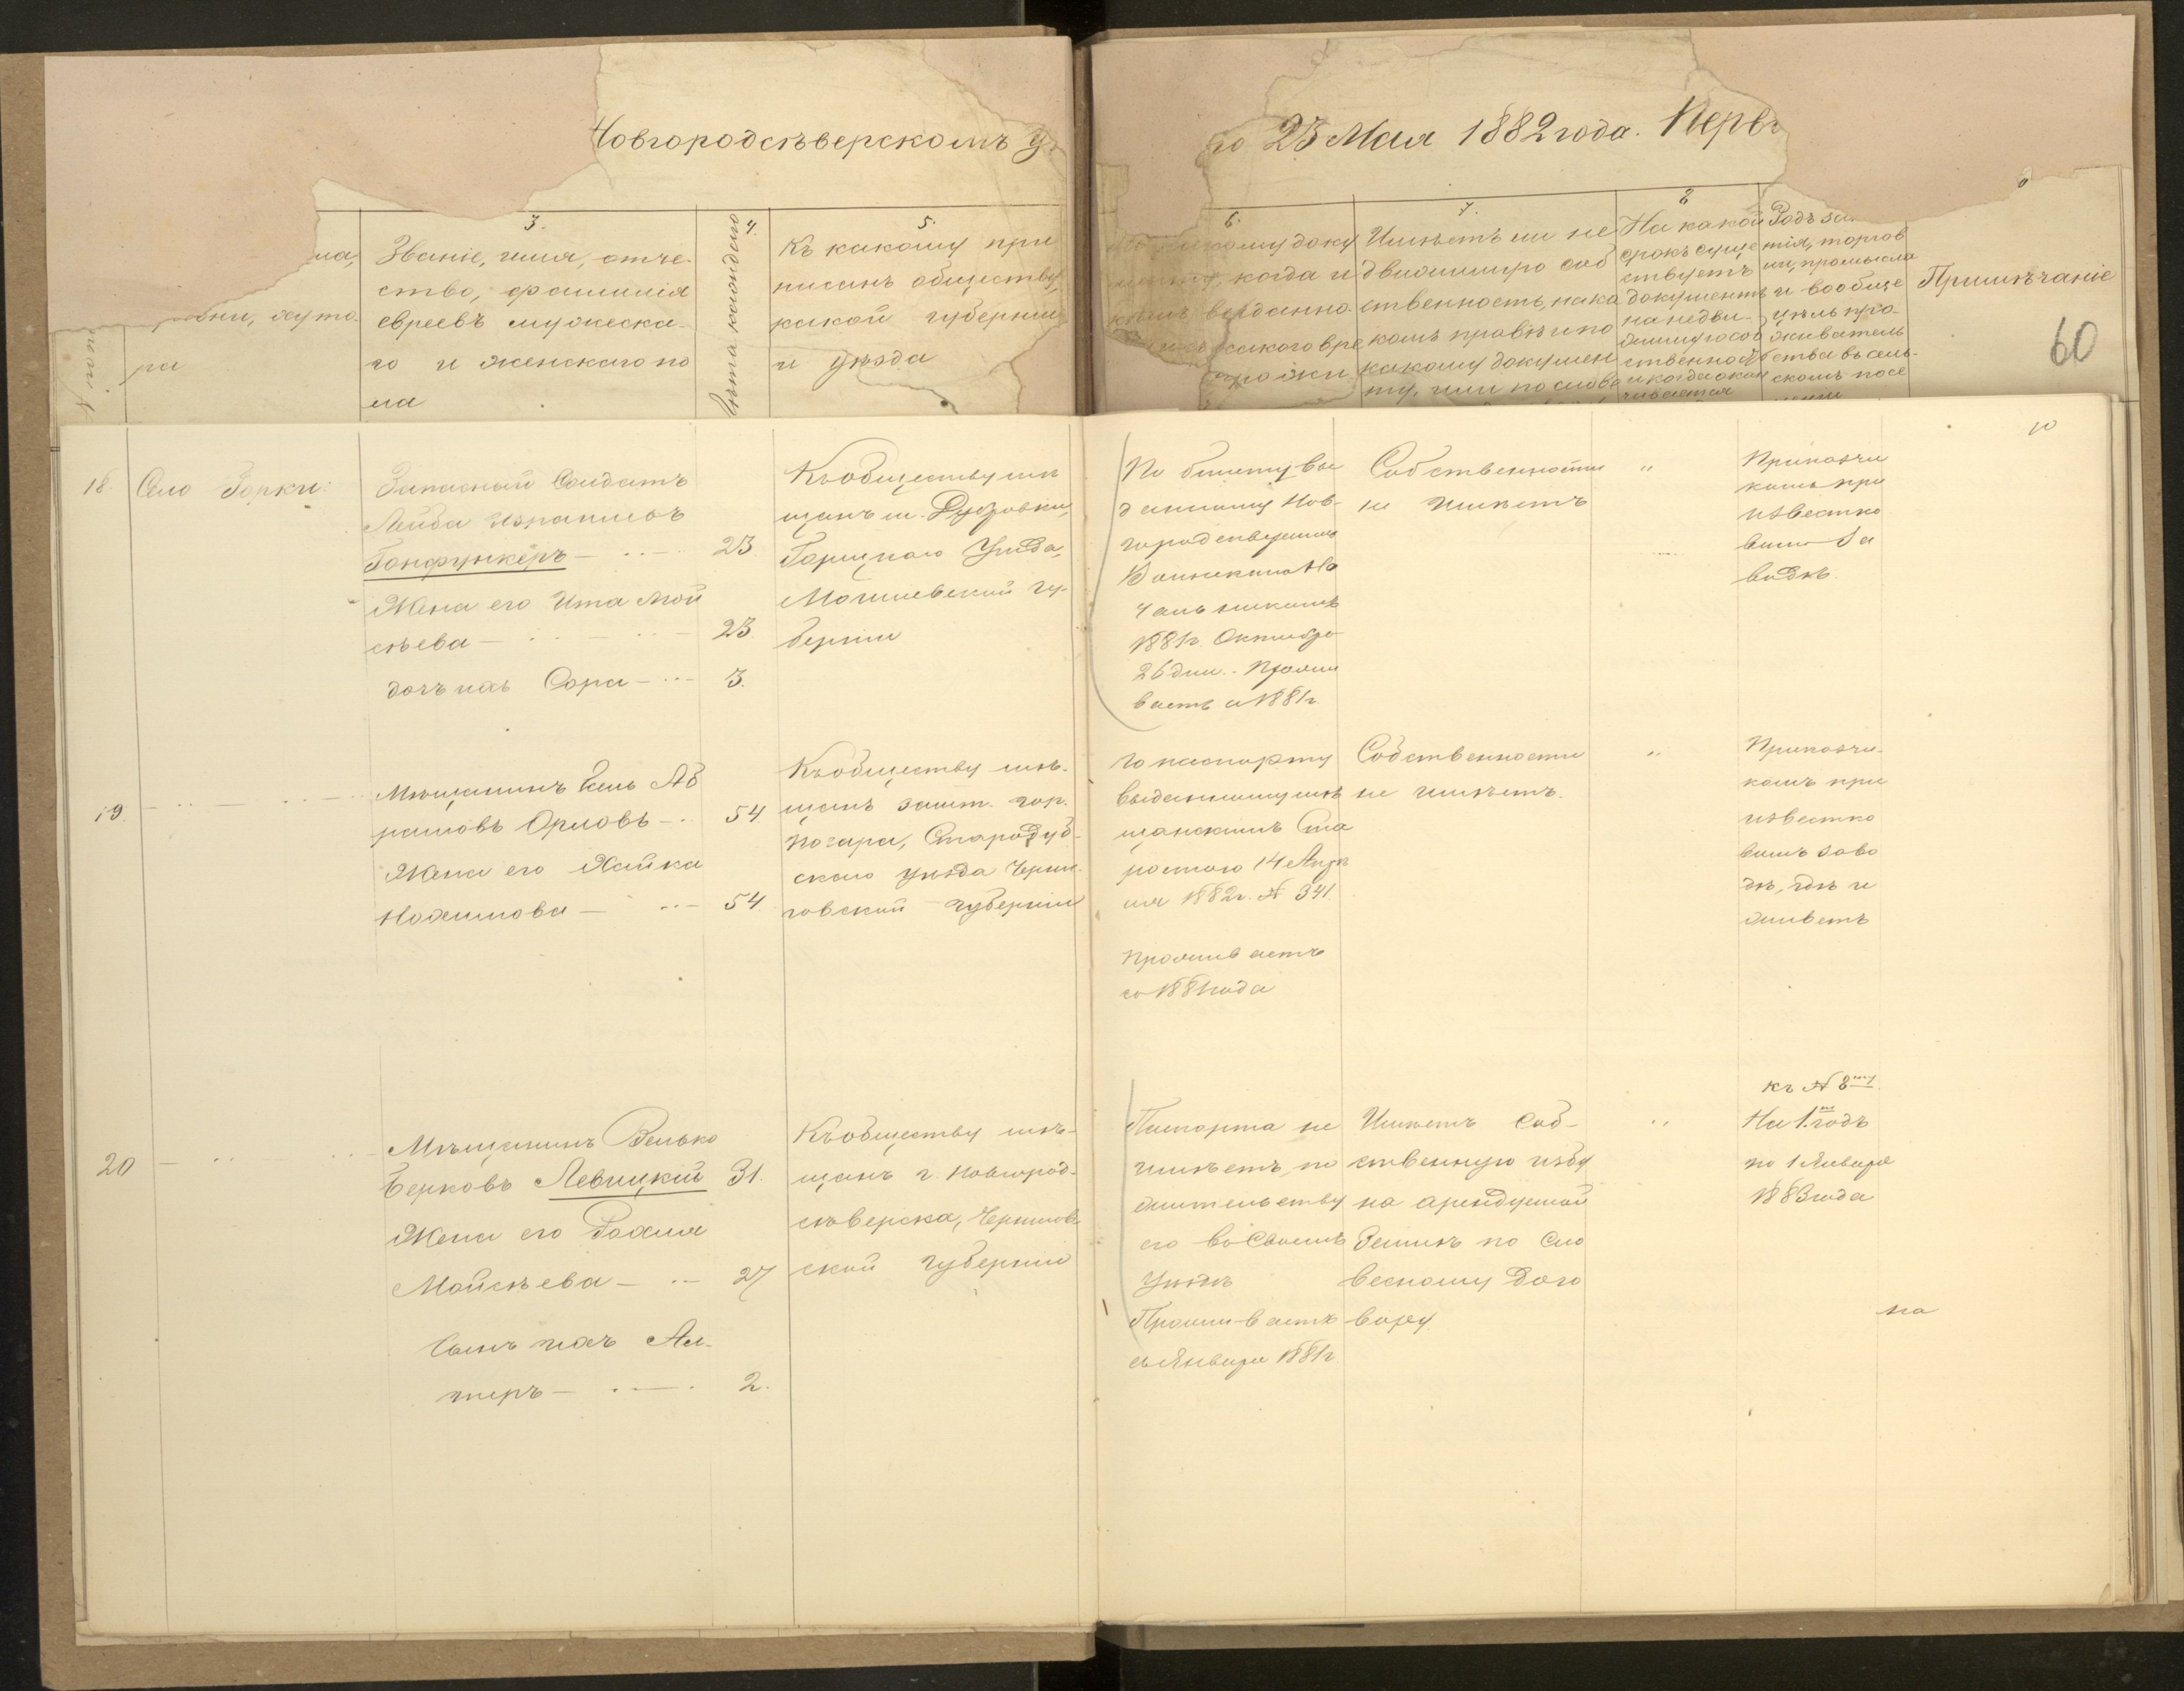 Новгородсѣверскомъ у
по 23 Мая 1882 года. Перв
3.
Званіе, имя, отче-
ство, фамилія
евреевъ мужеска-
го и женскаго по
ла
ма,
вни, хуто-
ра
4.
Лѣта каждаго
5.
Къ какому при
писанъ обществу,
какой губерніи
и уѣзда
6.
какому доку
менту, когда и
кѣмъ выданно-
какого вре
прожи
7.
Имѣетъ ли не
движимую соб
ственность, на ка
комъ правѣ и по
какому докумен
ту, или по слове
8
На какой
срокъ суще
ствуетъ
документъ
на недви-
жимую соб
ственность
и когда окан
чивается
Родъ зан
тія, торгов
ли, промысла
и вообще
цѣль про-
живатель
ства въ сель-
скомъ посе
леніи
Примѣчаніе
60
10
18.
Село Горки:
Запасный Солдатъ
Лейба Израилевъ
Ганфункеръ — 23.
Жена его Ита Мой
сѣева — 23.
дочъ ихъ Сора — 3.
Къ обществу мѣ
щанъ м. Дубровки,
Горицкаго Уѣзда,
Могилевской гу-
берніи
По билету вы
данному Нов-
городсѣверскимъ
Воинскимъ На
чальникомъ
1881г. Октября
26 дня. Прожи
ваетъ с 1881г.
Собственности
не имѣетъ
"
Приказчи
комъ при
известко
вомъ За
водѣ.
19.
Мѣщанинъ Гень Аб
рамовъ Орловъ — 54
Жена его Хайка
Нохимова — 54.
Къ обществу мѣ-
щанъ зашт. гор.
Погара, Стародуб-
скаго уѣзда Черни-
говской губерніи
По паспорту
выданному мѣ
щанскимъ Ста
ростою 14 Апрѣ
ля 1882г. № 341.
Проживаетъ
со 1881 года
Собственности
не имѣетъ.
"
Приказчи-
комъ при
известко
вомъ заво
дѣ, гдѣ и
живетъ
20
Мѣщанинъ Велько
Берковъ Левицкій 31.
Жена его Рохля
Мойсѣева — 27
Сынъ ихъ Ал-
теръ — 2.
Къ обществу мѣ-
щанъ г. Новгород-
сѣверска, Чернигов
ской губерніи
Паспорта не
имѣетъ, по
жительству
его въ Своемъ
Уѣздѣ
Проживаетъ
съ Января 1881г.
Имѣетъ Соб-
ственную избу
на арендуемой
Землѣ по Сло
весному Дого
вору
"
къ № 8му
На 1. годъ
по 1 Января
1883 года
на